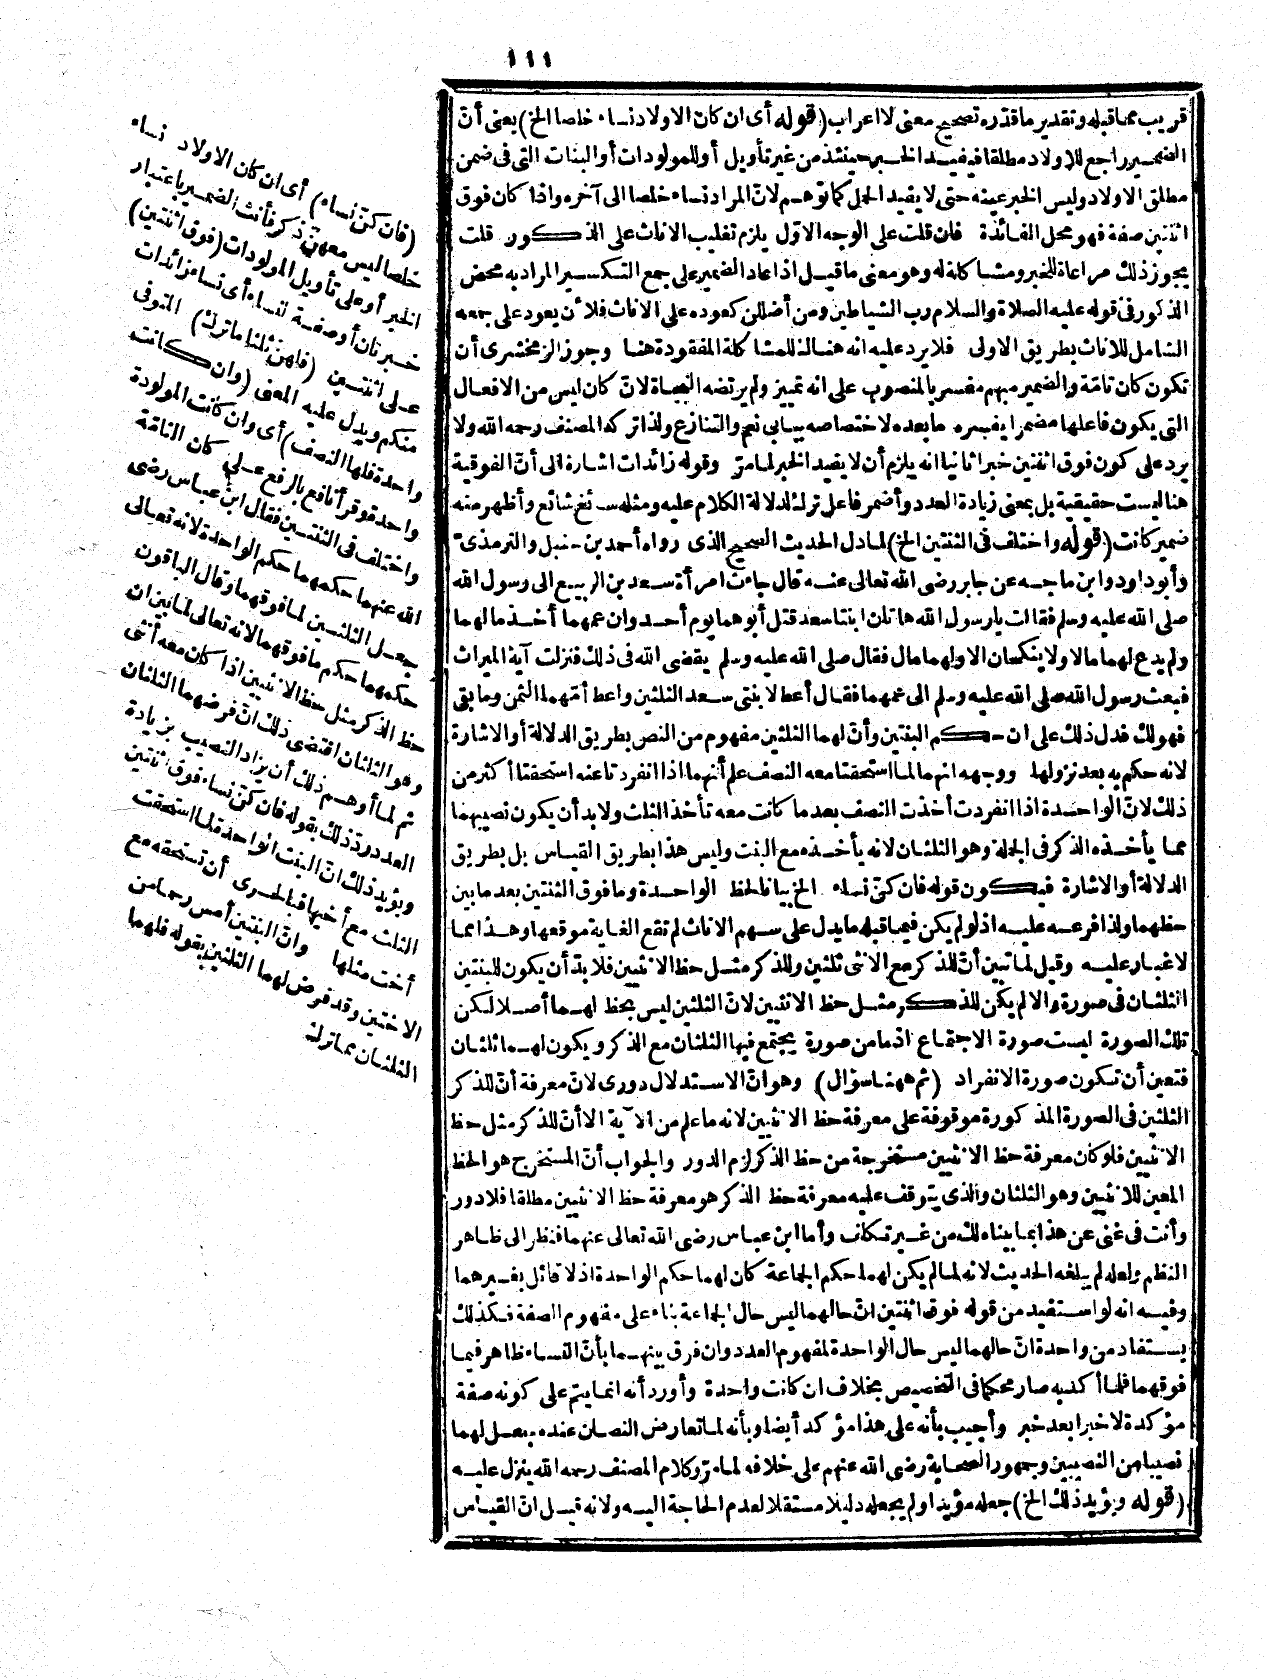 ١١١
قريب مما قبله وتقدير ما قدّره تصحيح معنى لا اعراب (قوله أى ان كان الاولاد نساء خلصا الخ) يعنى أنّ
الضمير راجع للاولاد مطلقا فيفيد الخبر حينئذ من غير تأويل أو للمولودات أو البنات التى فى ضمن
مطلق الاولاد وليس الخبر عينه حتى لا يفيد الحمل كما توهم لانّ المراد نساء خلصا الى آخره واذا كان فوق
اثنتين صفة فهو محل الفائدة فان قلت على الوجه الاوّل يلزم تغليب الاناث على الذكور قلت
يجوز ذلك مراعاة للخبر ومشاكلة له وهو معنى ما قيل اذا عاد الضمير على جمع التكسير المراد به محض
الذكور فى قوله عليه الصلاة والسلام رب الشياطين ومن أضللن كعوده على الاناث فلأن يعود على جمعه
الشامل للاناث بطريق الاولى فلا يرد عليه انه هنالك للمشاكلة المفقودة هنا وجوز الزمخشرى أن
تكون كان تامّة والضمير مبهم مفسر بالمنصوب على انه تمييز ولم يرتضه النحاة لانّ كان ليس من الافعال
التى يكون فاعلها مضمرا يفسره ما بعده لاختصاصه ببابى نعم والتنازع ولذا تركه المصنف رحمه الله ولا
يرد على كون فوق اثنتين خبرا ثانيا انه يلزم أن لا يفيد الخبر لما مرّ وقوله زائدات اشارة الى أنّ الفوقية
هنا ليست حقيقية بل بمعنى زيادة العدد وأضمر فاعل ترك لدلالة الكلام عليه ومثله سائغ شائع وأظهر منه
ضمير كانت (قوله واختلف فى الثنتين الخ) لما دل الحديث الصحيح الذى رواه أحمد بن حنبل والترمذىّ
وأبو داود وابن ماجه عن جابر رضى الله تعالى عنه قال جاءت امرأة سعد بن الربيع الى رسول الله
صلى الله عليه وسلم فقالت يا رسول الله هاتان ابنتا سعد قتل أبوهما يوم أحد وان عمهما أخذ مالهما
ولم يدع لهما مالا ولا ينكحان الا ولهما مال فقال صلى الله عليه وسلم يقضى الله فى ذلك فنزلت آية الميراث
فبعث رسول الله صلى الله عليه وسلم الى عمهما فقال أعط لابنتى سعد الثلثين واعط أمّهما الثمن وما بقى
فهو لك فدل ذلك على ان حكم البنتين وأنّ لهما الثلثين مفهوم من النص بطريق الدلالة أو الاشارة
لانه حكم به بعد نزولها ووجهه انهما لما استحقتا معه النصف علم أنهما اذا انفردتا عنه استحقتا أكثر من
ذلك لانّ الواحدة اذا انفردت أخذت النصف بعد ما كانت معه تأخذ الثلث ولا بد أن يكون نصيبهما
مما يأخذه الذكر فى الجملة وهو الثلثان لانه يأخذه مع البنت وليس هذا بطريق القياس بل بطريق
الدلالة أو الاشارة فيكون قوله فان كنّ نساء الخ بيانا لحظ الواحدة وما فوق الثنتين بعد ما بين
حظهما ولذا فرعه عليه اذ لو لم يكن فيما قبله ما يدل على سهم الاناث لم تقع الفاء موقعها وهذا مما
لا غبار عليه وقيل لما تبين أنّ للذكر مع الانثى ثلثين وللذكر مثل حظ الانثيين فلا بدّ أن يكون للبنتين
الثلثان فى صورة والا لم يكن للذكر مثل حظ الانثيين لانّ الثلثين ليس بحظ لهما أصلا لكن
تلك الصورة ليست صورة الاجتماع اذ ما من صورة يجتمع فيها الثلثان مع الذكر ويكون لهما ثلثان
فتعين أن تكون صورة الانفراد (ثم ههنا سؤال) وهو انّ الاستدلال دورى لانّ معرفة أنّ للذكر
الثلثين فى الصورة المذكورة موقوفة على معرفة حظ الانثيين لانه ما علم من الآية الا أنّ للذكر مثل حظ
الانثيين فلو كان معرفة حظ الانثيين مستخرجة من حظ الذكر لزم الدور والجواب أنّ المستخرج هو الحظ
المعين للانثيين وهو الثلثان والذى يتوقف عليه معرفة حظ الذكر هو معرفة حظ الانثيين مطلقا فلا دور
وأنت فى غنى عن هذا بما بيناه لك من غير تكلف وأما ابن عباس رضى الله تعالى عنهما فنظر الى ظاهر
النظم ولعله لم يبلغه الحديث لانه لما لم يكن لهما حكم الجماعة كان لهما حكم الواحدة اذ لا قائل بغيرهما
وفيه انه لو استفيد من قوله فوق اثنتين انّ حالهما ليس حال الجماعة بناء على مفهوم الصفة فكذلك
يستفاد من واحدة انّ حالهما ليس حال الواحدة لمفهوم العدد وان فرق بينهما بأنّ النساء ظاهر فيما
فوقهما فلما أكد به صار محكما فى التخصيص بخلاف ان كانت واحدة وأورد أنه انما يتم على كونه صفة
مؤكدة لا خبرا بعد خبر وأجيب بأنه على هذا مؤكد أيضا وبأنه لما تعارض النصان عنده جعل لهما
نصيبا من النصيبين وجمهور الصحابة رضى الله عنهم على خلافه لما مرّ وكلام المصنف رحمه الله ينزل عليه
(قوله ويؤيد ذلك الخ) جعله مؤيدا ولم يجعله دليلا مستقلا لعدم الحاجة اليه ولانه قيل انّ القياس
(فان كنّ نساء) أى ان كان الاولاد نساء
خلصا ليس معهنّ ذكر فأنث الضمير باعتبار
الخبر أو على تأويل المولودات (فوق اثنتين)
خبر ثان أو صفة لنساء أى نساء زائدات
على اثنتين (فلهنّ ثلثا ما ترك) المتوفى
منكم ويدل عليه المعنى (وان كانت
واحدة فلها النصف) أى وان كانت المولودة
واحدة وقرأ نافع بالرفع على كان التامّة
واختلف فى الثنتين فقال ابن عباس رضى
الله عنهما حكمهما حكم الواحدة لانه تعالى
جعل الثلثين لما فوقهما وقال الباقون
حكمهما حكم ما فوقهما لانه تعالى لما بين ان
حظ الذكر مثل حظ الانثيين اذا كان معه أنثى
وهو الثلثان اقتضى ذلك انّ فرضهما الثلثان
ثم لما أوهم ذلك أن يزاد النصيب بزيادة
العدد ردّ ذلك بقوله فان كنّ نساء فوق اثنتين
ويؤيد ذلك انّ البنت الواحدة لما استحقت
الثلث مع أخيها فبالحرى أن تستحقه مع
أخت مثلها وانّ البنتين أمس رحما من
الاختين وقد فرض لهما الثلثين بقوله فلهما
الثلثان مما ترك